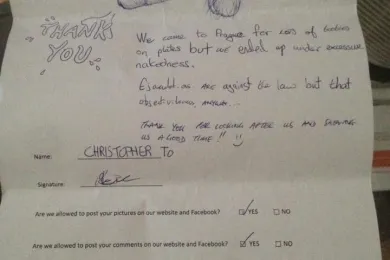 THANK
YOU
We came to Prague for lots of
on plates but we ended up under
nakedness.
are against the law but that
THANK YOU FOR LOOKING AFTER US AND SHOWING
US A GOOD TIME!!
Name: CHRISTOPHER To
Signature:
Are we allowed to post your pictures on our website and Facebook? ☑ YES ☐ NO
Are we allowed to post your comments on our website and Facebook? ☑ YES ☐ NO